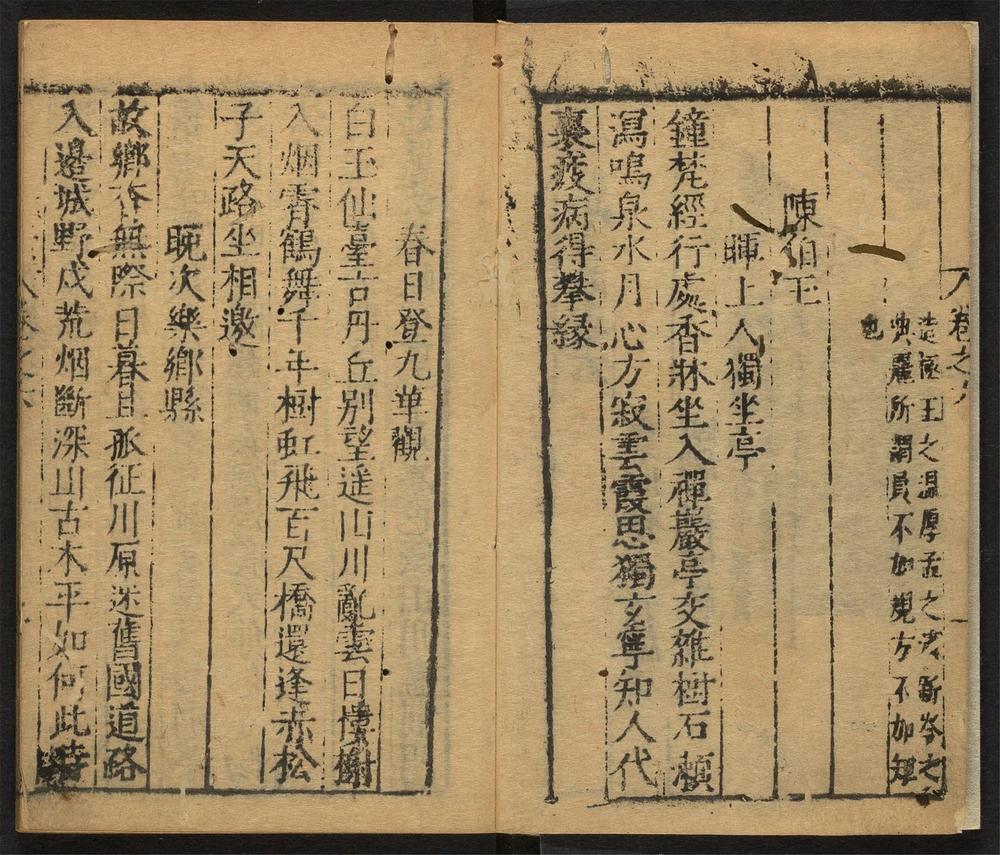 卷之
王之温厚孟之清新岑之
典麗所謂員不如規方不如矩
也
陳伯玉
暉上人獨坐亭
鐘梵經行處香牀坐入禪巖亭交雜樹石瀬
瀉鳴泉水月心方寂雲霞思獨玄寧知人代
裏疲病得攀縁
春日登九華觀
白玉仙臺古丹丘別望遥山川亂雲日樓榭
入烟霄鶴舞千年樹虹飛百尺橋還逢赤松
子天路坐相邀
晚次樂鄉縣
故鄉杳無際日暮且孤征川原迷舊國道路
入邊城野戍荒烟斷深山古木平如何此時